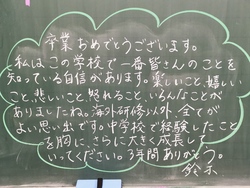 卒業おめでとうございます。
私はこの学校で一番皆さんのことを
知っている自信があります。楽しいこと、嬉しい
こと、悲しいこと、怒れること、いろんなことが
ありましたね。海外研修以外全てが
よい思い出です。中学校で経験したこと
を胸に、さらに大きく成長して
いってください。3年間ありがとう。